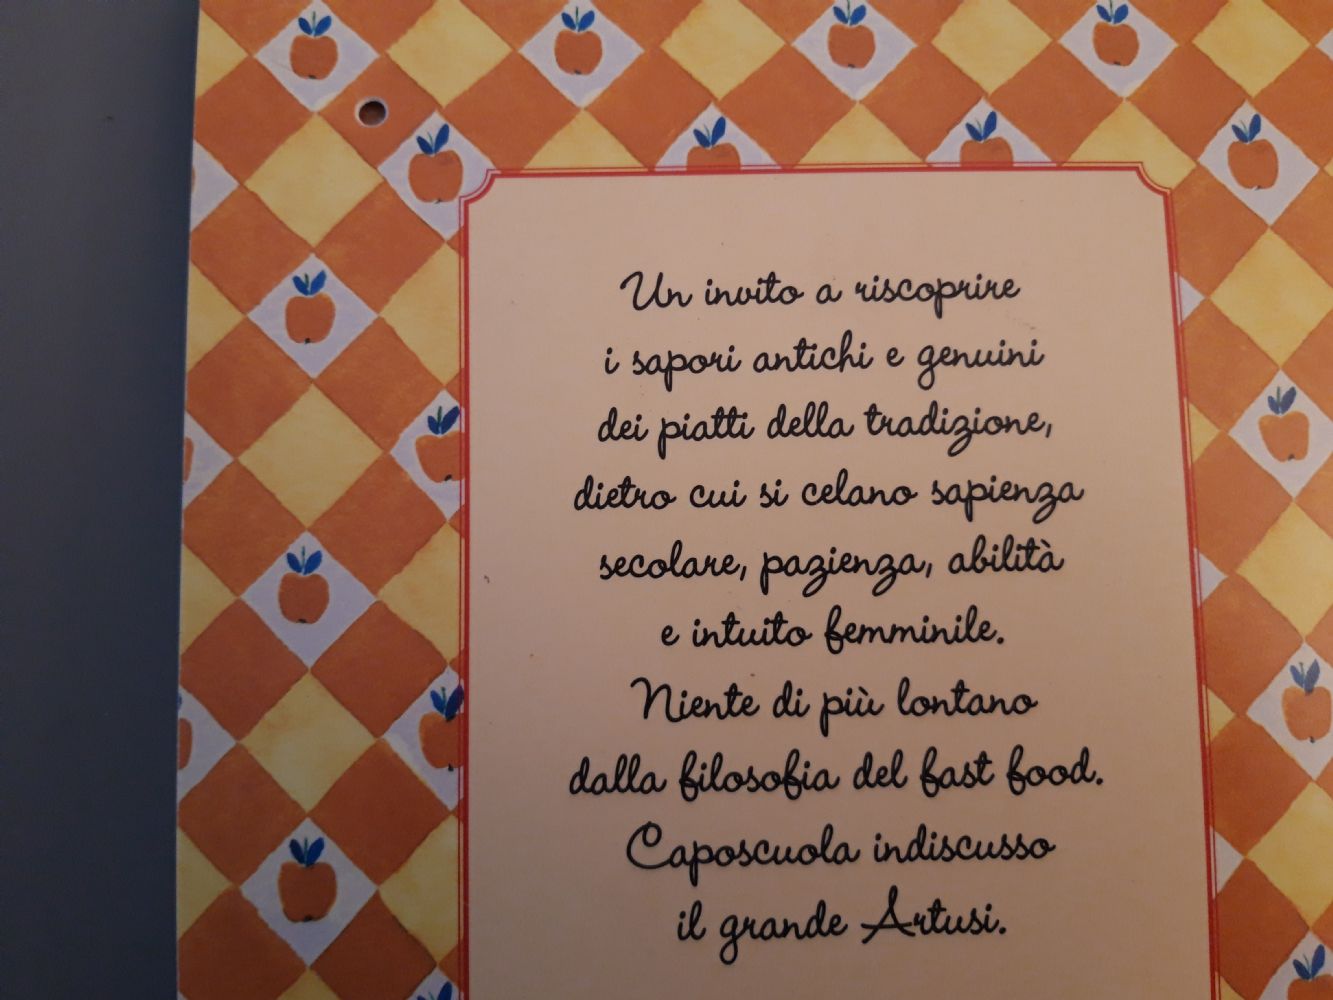 Un invito a riscoprire
i sapori antichi e genuini
dei piatti della tradizione,
dietro cui si celano sapienza
secolare, pazienza, abilità
e intuito femminile.
Niente di più lontano
dalla filosofia del fast food.
Caposcuola indiscusso
il grande Artusi.